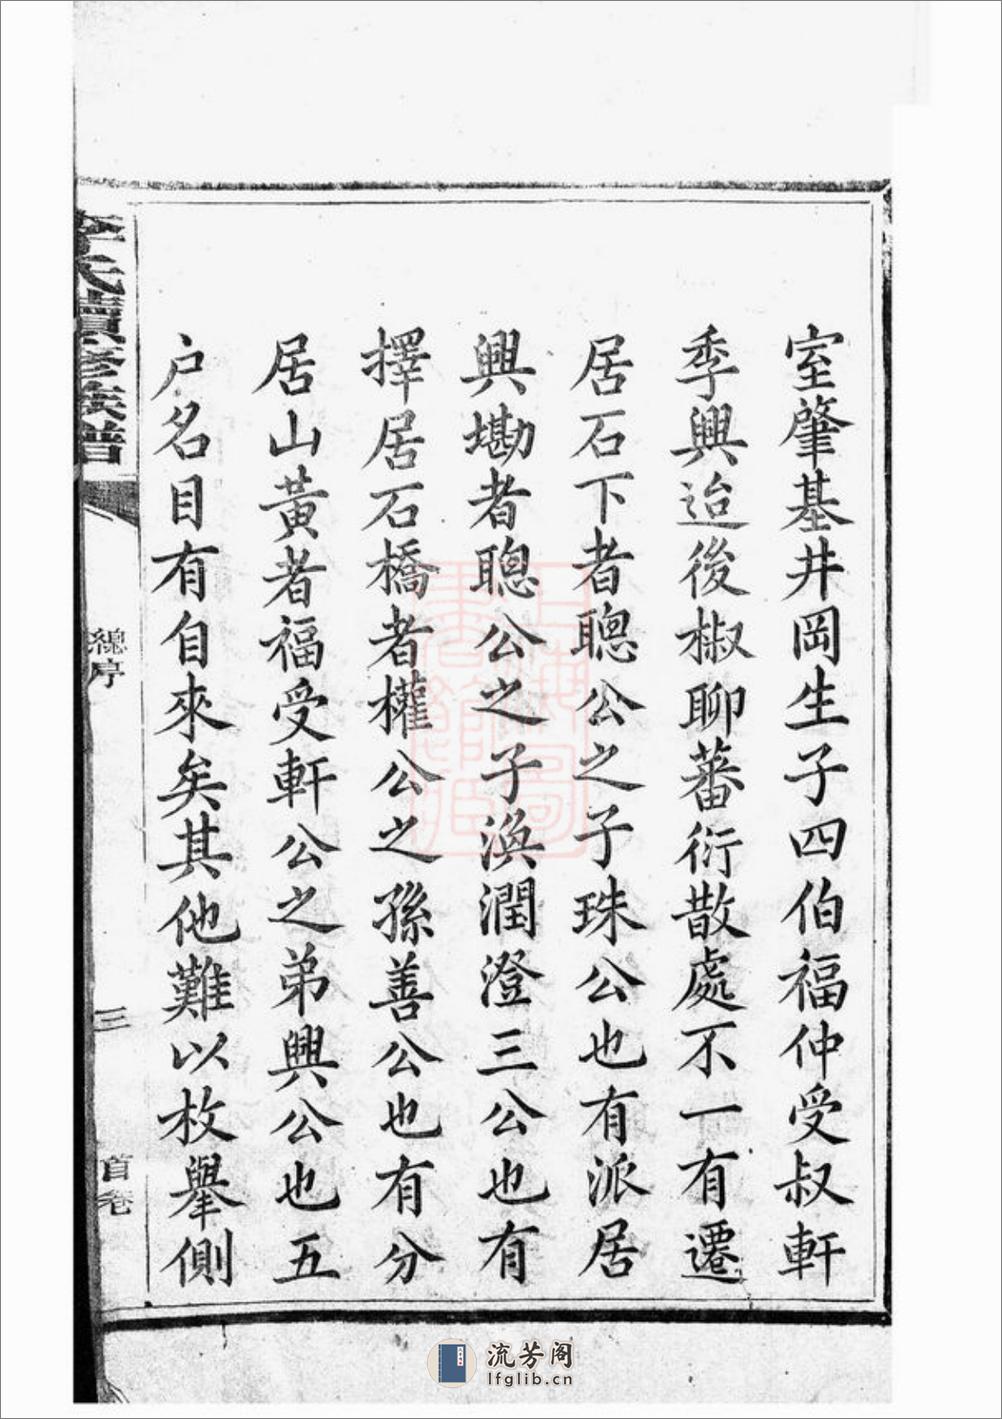 室肇基井岡生子四伯福仲受叔軒
季興迨後椒聊蕃衍散處不一有遷
居石下者聰公之子珠公也有派居
興墈者聰公之子渙潤澄三公也有
擇居石橋者權公之孫善公也有分
居山黃者福受軒公之弟興公也五
户名目有自來矣其他難以枚舉側
李氏續修族譜
總序
三
首卷
流芳阁
lfglib.cn